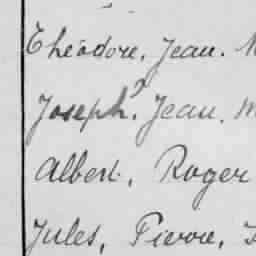 Théodore, Jean.
Joseph, Jean,
Albert, Roger
Jules, Pierre,